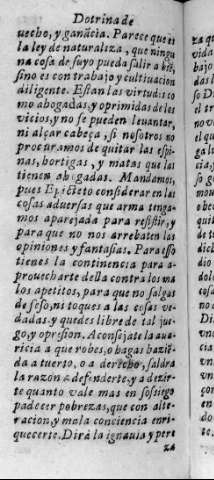 Dotrina de
uecho, y ganãcia. Parece que es
la ley de naturaleza, que ningu
na cosa de suyo pueda salir a biẽ,
sino es con trabajo y cultiuacion
diligente. Estan las virtudes co
mo ahogadas, y oprimidas de los
vicios, y no se pueden leuantar,
ni alçar cabeça, si nosotros no
procuramos de quitar las espi-
nas, hortigas, y matas que las
tienen ahogadas. Mandamos,
pues Epicteto considerar en las
cosas aduersas que arma tenga-
mos aparejada para resistir, y
para que no nos arrebaten las
opiniones y fantasias. Para esso
tienes la continencia para a-
prouecharte della contra los ma
los apetitos, para que no salgas
de seso, ni toques a las cosas ve-
dadas, y quedes libre de tal jue-
go, y opresion. Aconsejate la aua-
ricia a que robes, o hagas haziẽ-
da a tuerto, o a derecho, saldra
la razon a defenderte, y a dezir-
te quanto vale mas en sosiego
padecer pobrezas, que con alte-
racion, y mala conciencia enri-
quecerte. Dirá la ignauia, y pere
za